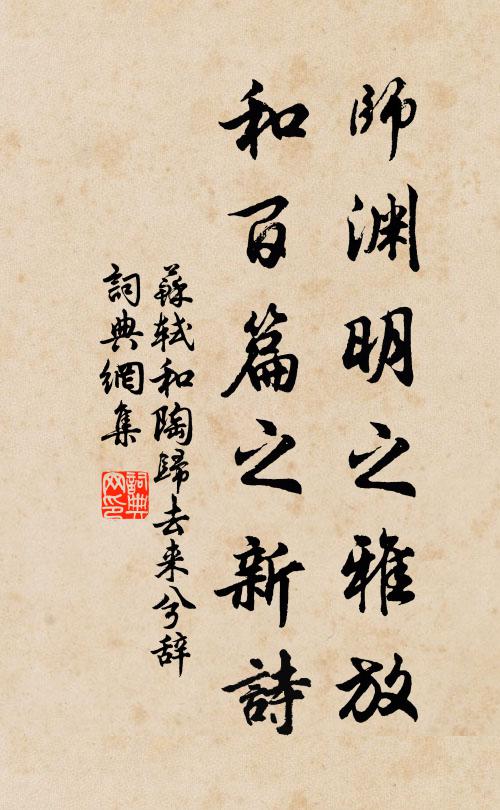 師渊明之雅放
和百篇之新詩
蘇軾和陶歸去来兮辞
詞典網集
詞典网印